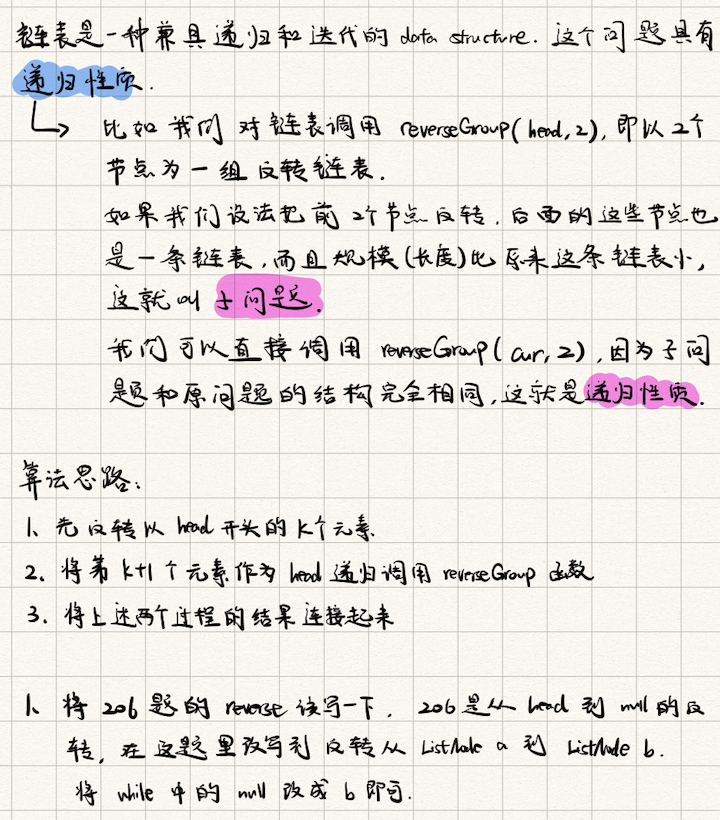 链表是一种兼具递归和迭代的 data structure. 这个问题具有
递归性质.
比如我们对链表调用 reverseGroup(head, 2), 即以2个
节点为一组反转链表.
如果我们设法把前2个节点反转, 后面的这些节点也
是一条链表, 而且规模(长度)比原来这条链表小,
这就叫子问题.
我们可以直接调用 reverseGroup(cur, 2), 因为子问
题和原问题的结构完全相同, 这就是递归性质.
算法思路:
1. 先反转以 head 开头的K个元素
2. 将第 K+1 个元素作为 head 递归调用 reverseGroup 函数
3. 将上述两个过程的结果连接起来
1. 将206题的 reverse 改写一下, 206是从 head 到 null 的反
转, 在这题里改写到反转从 ListNode a 到 ListNode b.
将 while 中的 null 改成 b 即可.